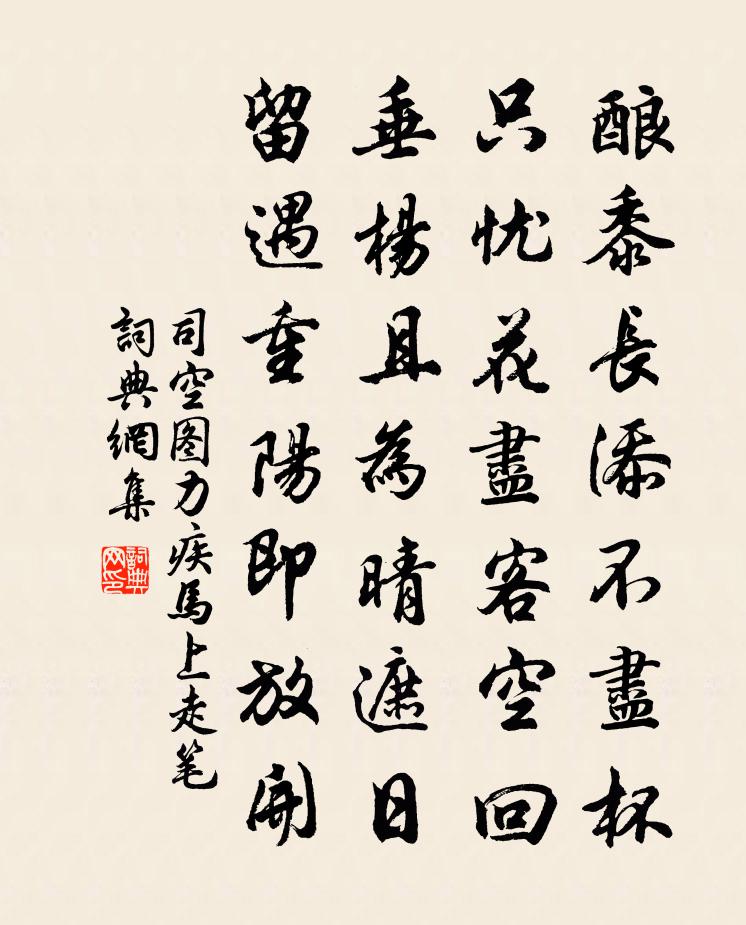 酿黍長添不盡杯
只忧花盡客空回
垂楊且為晴遮日
留遇重陽即放開
司空图力疾馬上走笔
詞典網集
詞典网印